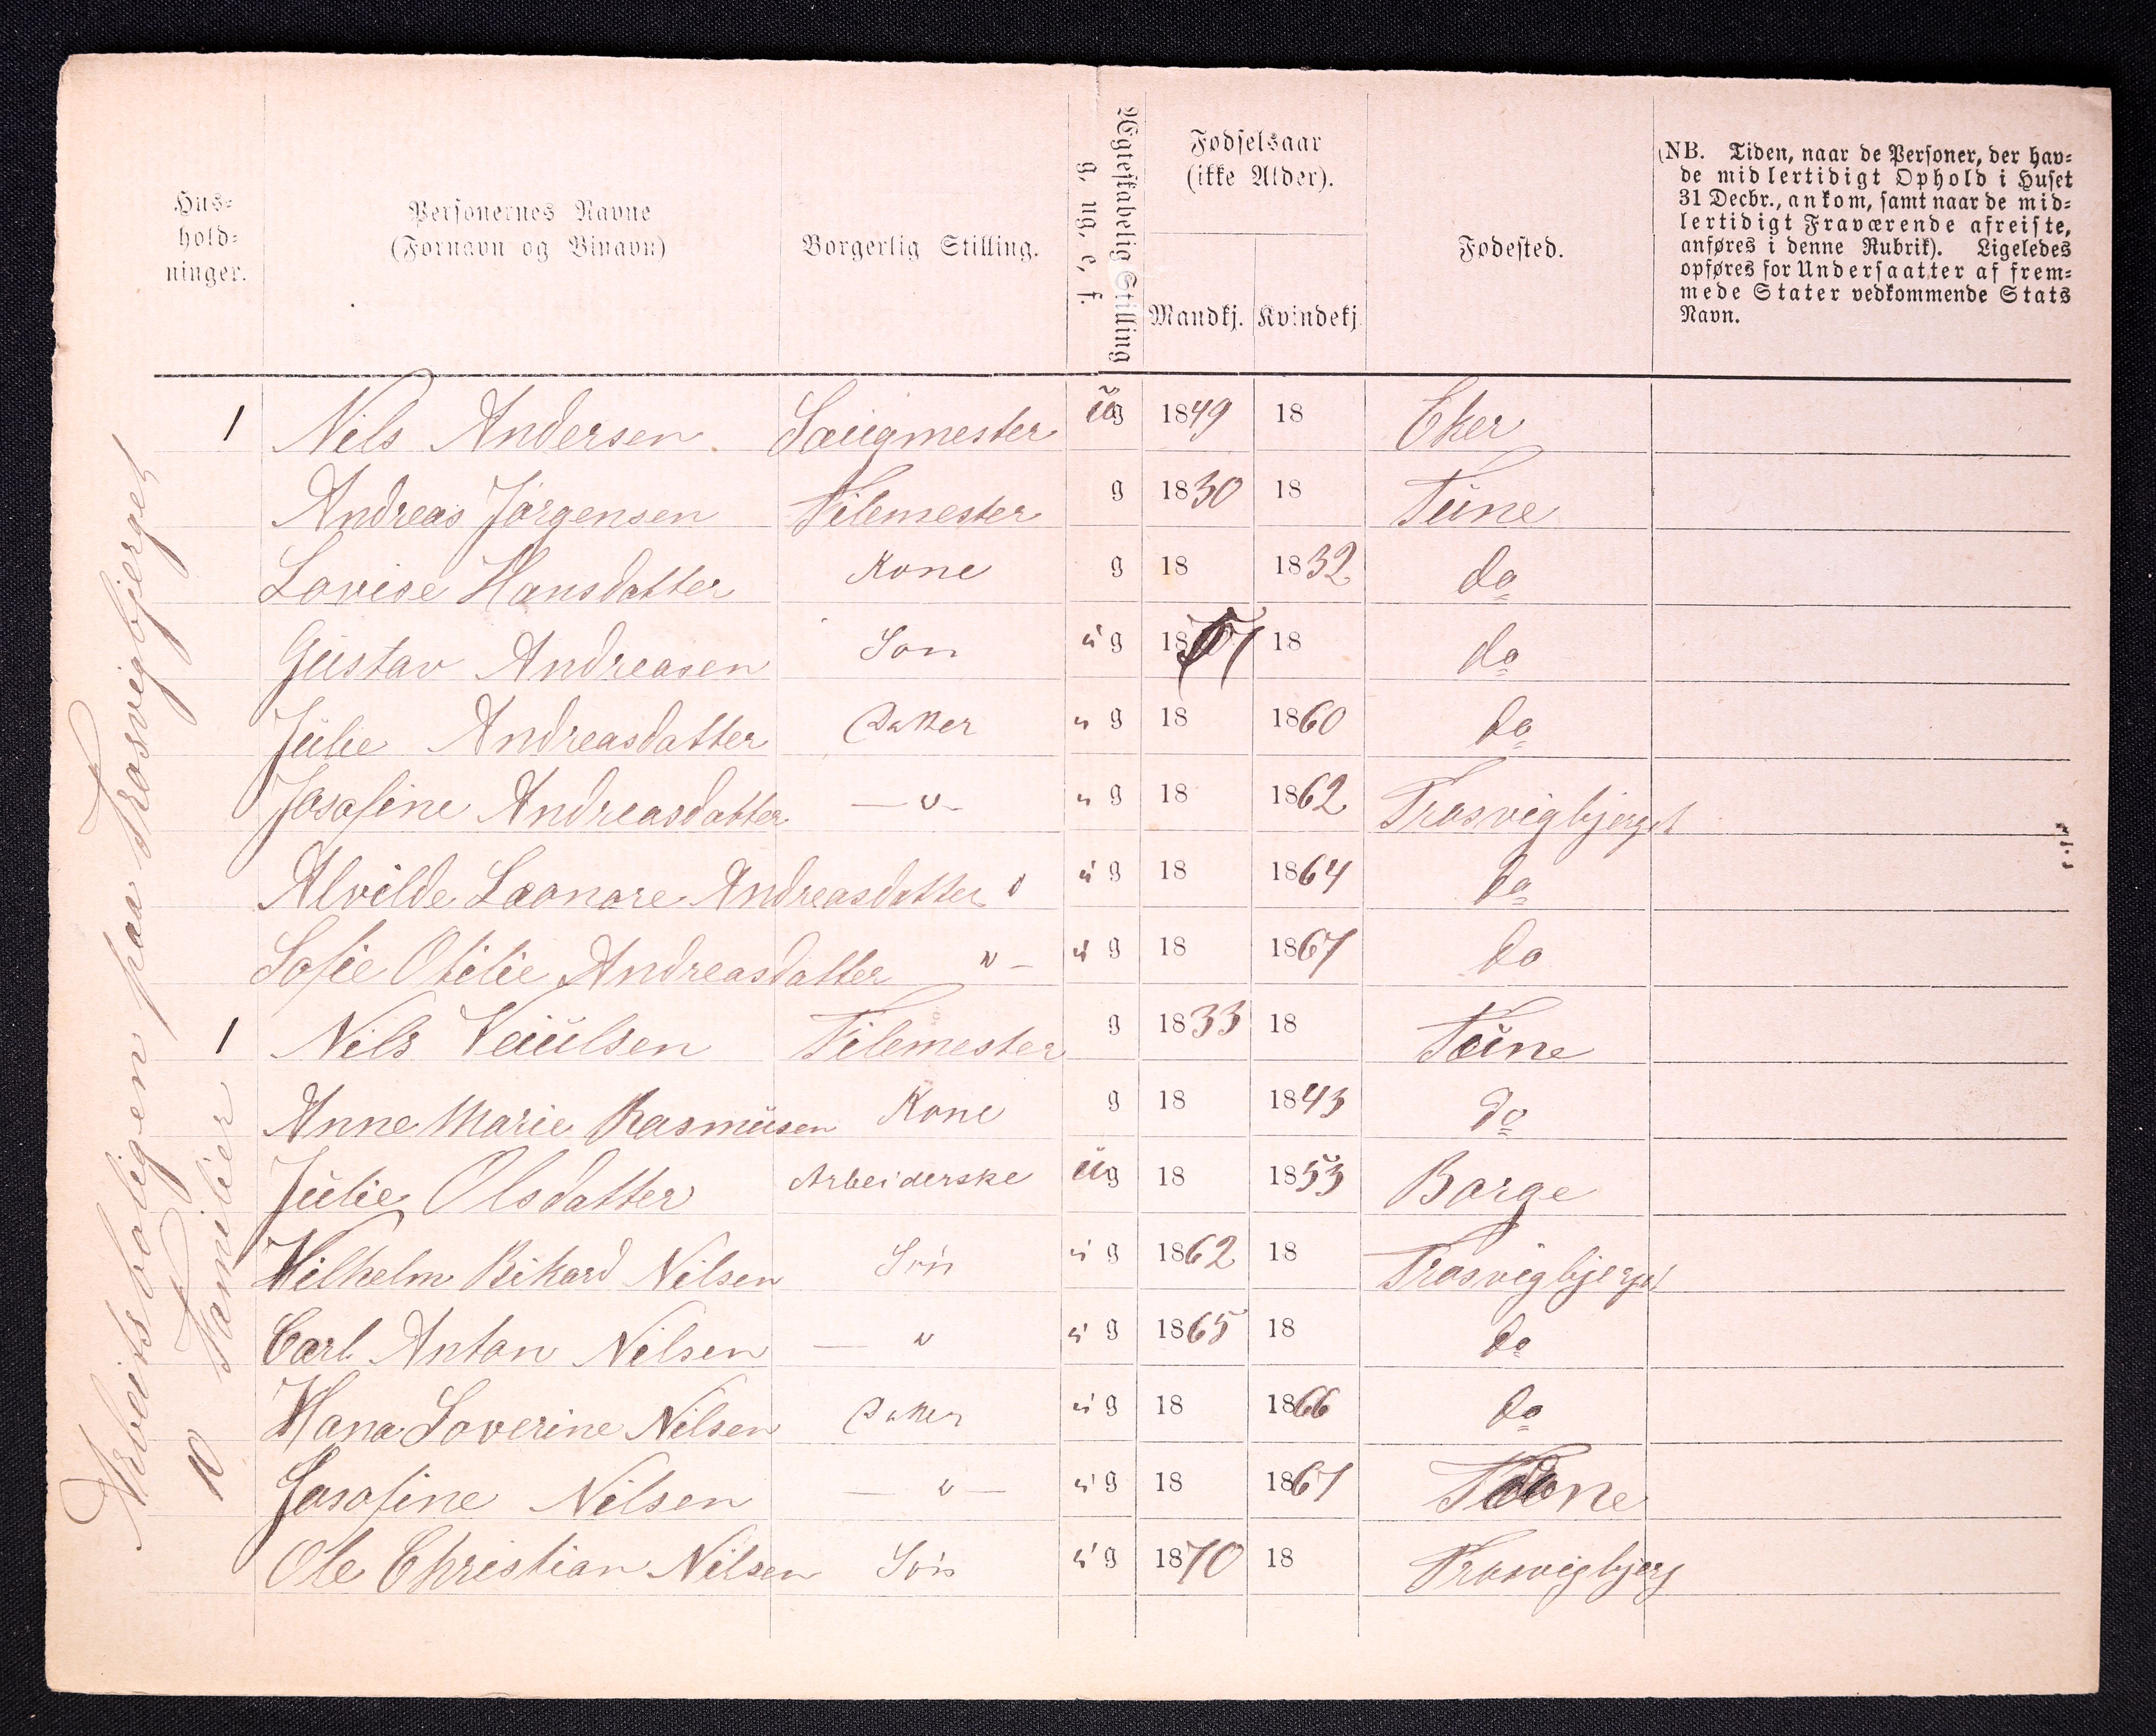 Hus-
hold-
ninger.
Personernes Navne
(Fornavn og Binavn)
Borgerlig Stilling.
Ægteskabelig Stilling
g, ug, e, f.
Fødselsaar
(ikke Alder).
Mandkj. Kvindekj
Fødested.
(NB. Tiden, naar de Personer, der hav-
de midlertidigt Ophold i Huset
31 Decbr., ankom, samt naar de mid-
lertidigt Fraværende afreiste,
anføres i denne Rubrik). Ligeledes
opføres for Undersaatter af frem-
mede Stater vedkommende Stats
Navn.
Arbeitsboligen paa Trosvigbjerget
10 Familier
1 Nils Andersen Saugmester ug 1849 18 Eker
Andreas Jørgensen Tilemester g 1830 18 Tune
Lovise Hansdatter Kone g 18 1832 do
Gustav Andreasen Son ug 18 18 do
Julie Andreasdatter Datter ug 18 1860 do
Josofine Andreasdatter — " - ug 18 1862 Trosvigbjerget
Alvilde Leonore Andreasdatter ug 18 1864 do
Sofie Otilie Andreasdatter " - ug 18 1867 do
1 Nils Veiulsen Tilemester g 1833 18 Tune
Anne Marie Rasmusen Kone g 18 1843 do
Julie Olsdatter Arbeiderske ug 18 1853 Borge
Wilhelm Rikard Nilsen Søn ug 1862 18 Trosvigbjerget
Carl Anton Nilsen — " ug 1865 18 do
Hana Soverine Nilsen Datter ug 18 1866 do
Josofine Nilsen — " — ug 18 1867
Ole Christian Nilsen Søn ug 1870 18 Trosvigbjerg